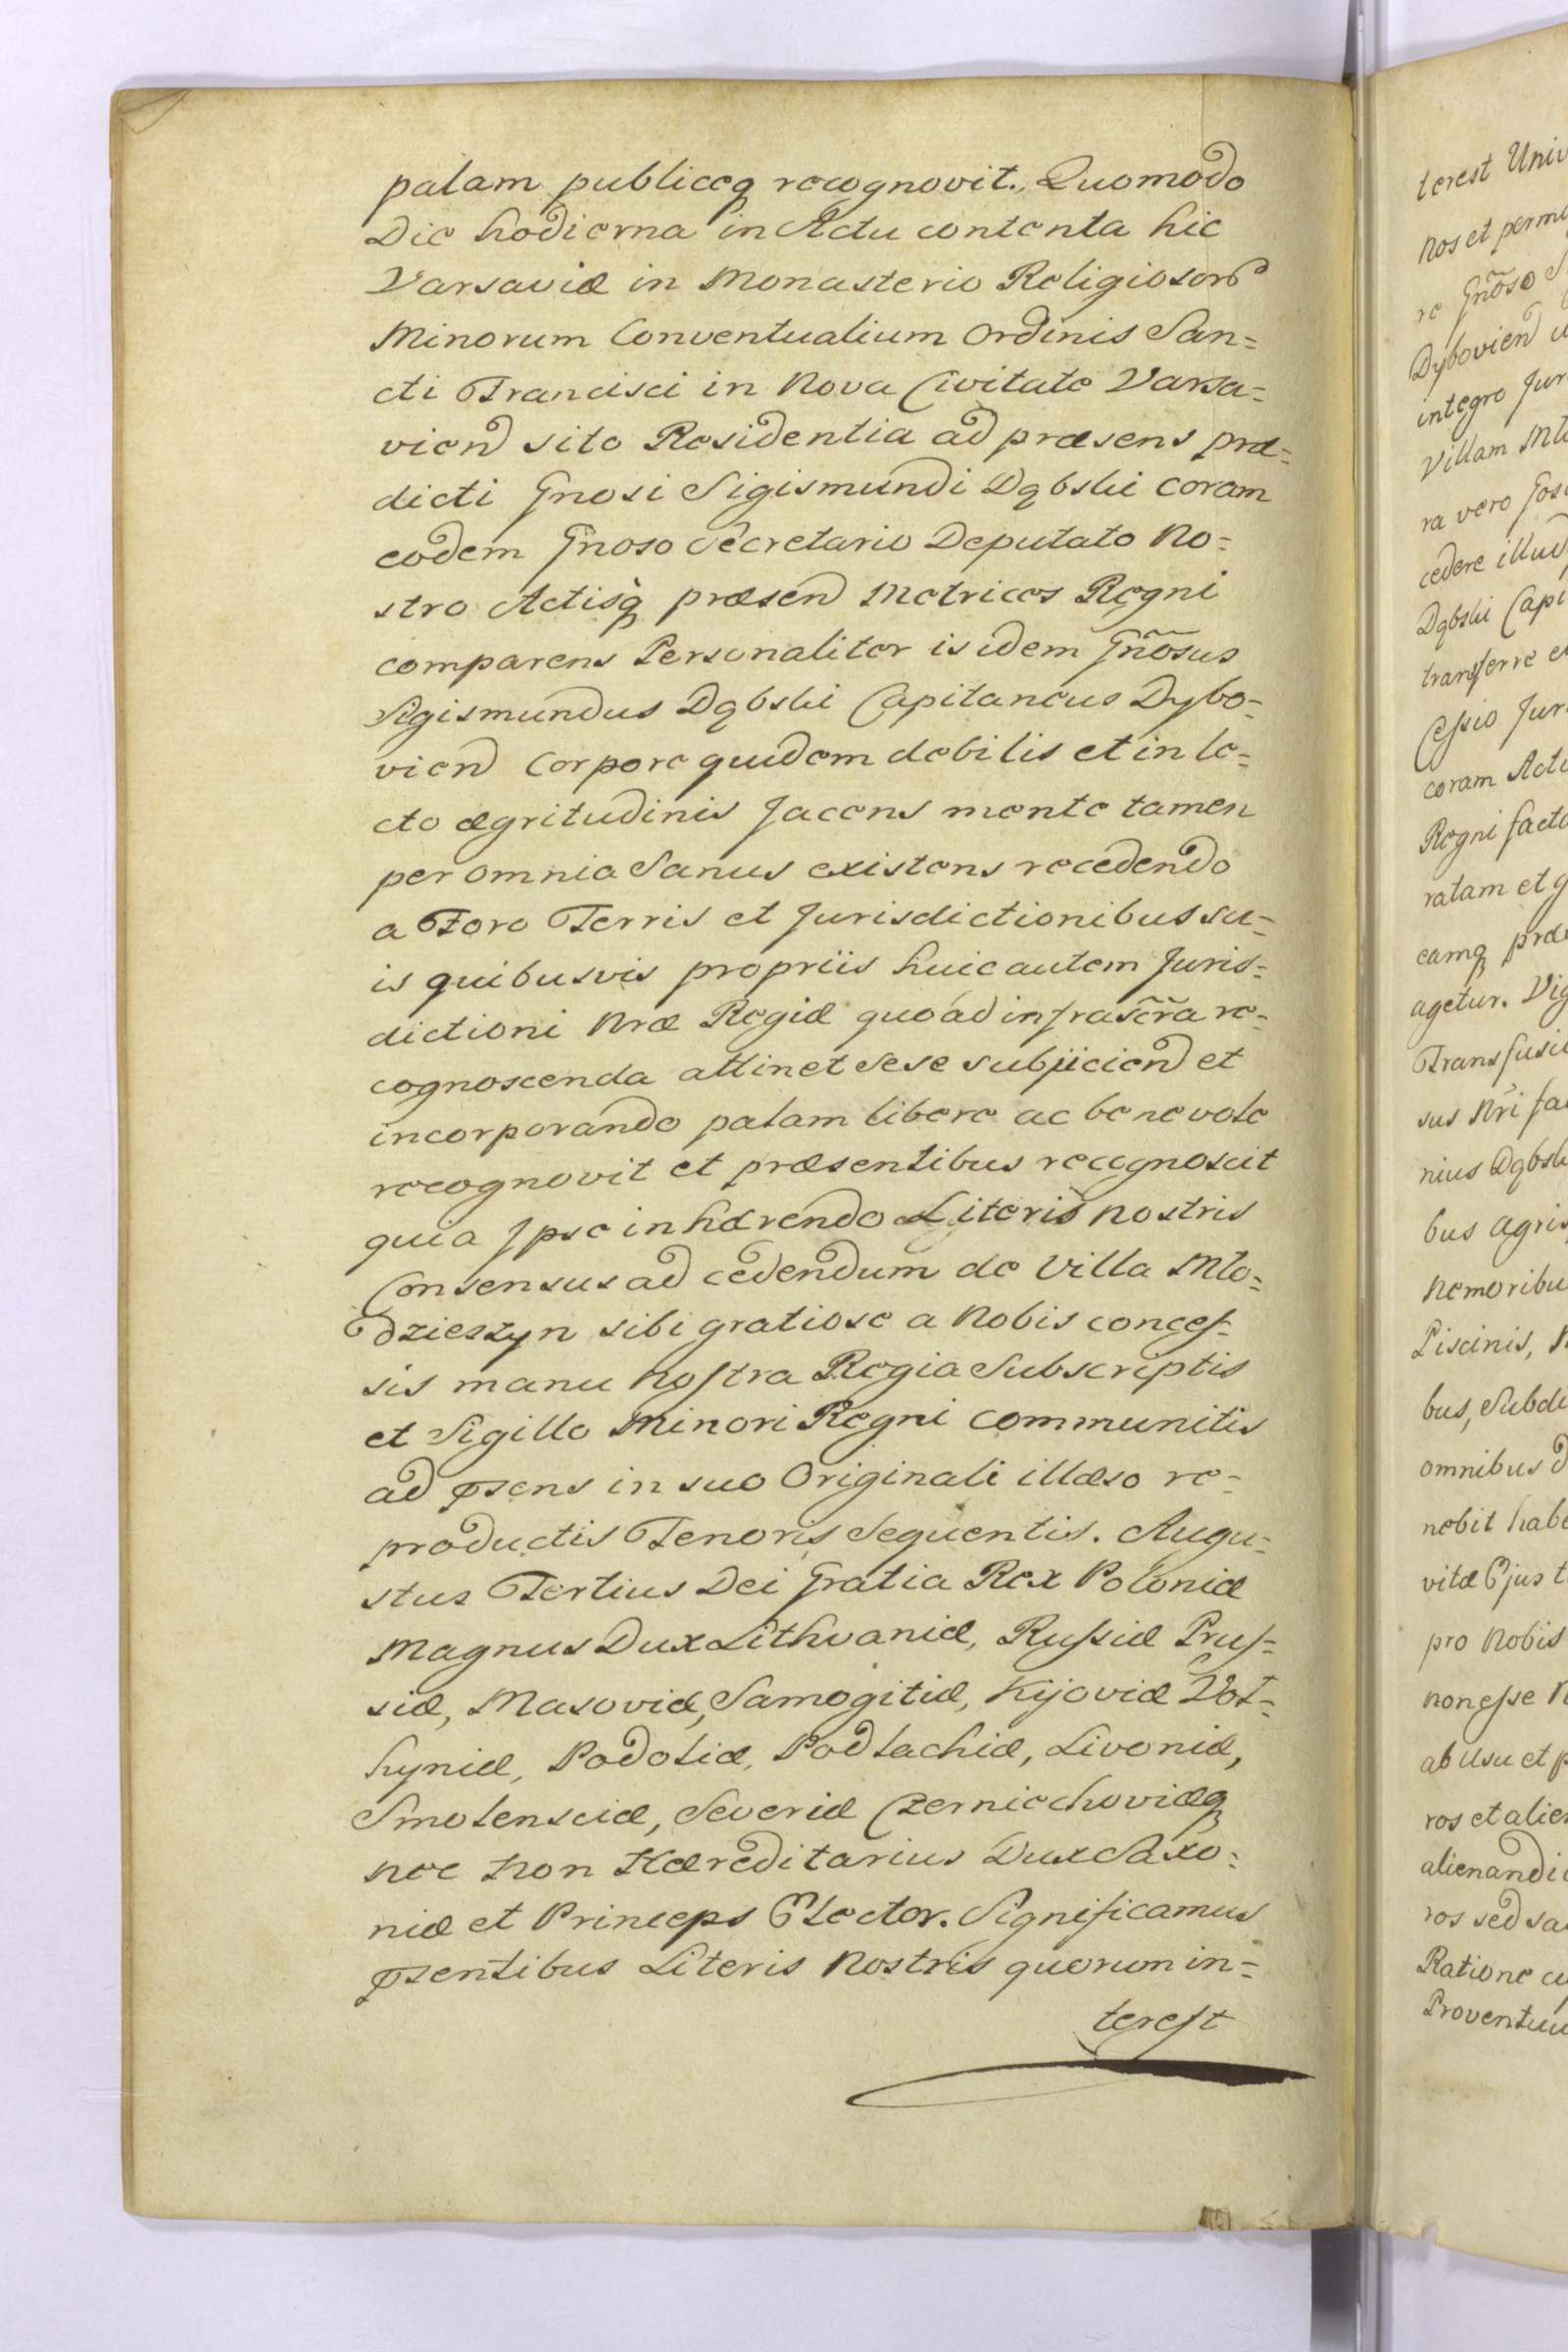 palam publiceq recognovit., Quomodo
Die hodierna in Actu contenta hic
Varsaviæ in Monasterio Religiosor
Minorum Conventualium Ordinis San=
cti Francisci in Nova Civitate Varsa=
vien sito Residentia ad præsens præ=
dicti Gnosi Sigismundi Dąbski coram
eodem Gnoso Secretario Deputato No=
stro Actisq præsen Metrices Regni
comparens Personaliter is idem Gñosus
Sigismundus Dąbski Capitaneus Dybo=
vien Corpore quidem debilis et in le=
cto ægritudinis Jacens mente tamen
per omnia Sanus existens recedendo
a Foro Terris et Jurisdictionibus su=
is quibusvis propriis huic autem Juris=
dictioni Nræ Regiæ quoad infrascr̃a re=
cognoscenda attinet Sese subjicien et
incorporando palam libere ac benevole
recognovit et præsentibus recognoscit
quia Ipse inhærendo Literis nostris
Consensus ad cedendum de Villa Mło=
dzieszyn sibi gratiose a Nobis conces=
sis manu nostra Regia Subscriptis
et Sigillo Minori Regni communitis
ad psens in suo Originali illæso re=
productis Tenoris Sequentis. Augu=
stus Tertius Dei Gratia Rex Poloniæ
Magnus Dux Lithvaniæ, Russiæ Prus=
siæ, Masoviæ, Samogitiæ, Kijoviæ Vol=
hyniæ, Podoliæ, Podlachiæ, Livoniæ,
Smolensciæ, Severiæ Czerniechoviæq
nec non Hæreditarius Dux Saxo=
niæ et Princeps Elector. Significamus
psentibus Literis Nostris quorum in=
terest
terest Univ
nos et perm
re Gñoso S
Dybovien u
integro Jur
Villam Mł
ra vero Gos
cedere illud
Dąbski Capi
transferre e
Cessio Jur
coram Act
Regni fact
ratam et g
eamq præ
agetur. Vig
Transfusi
sus Nr̃i fa
nius Dąbsk
bus agris
Nemoribu
Piscinis, N
bus, Subd
omnibus d
nebit hab
vitæ Ejus t
pro Nobis
non esse N
ab Usu et p
ros et alie
alienandi
ros sed sa
Ratione cu
Proventuu